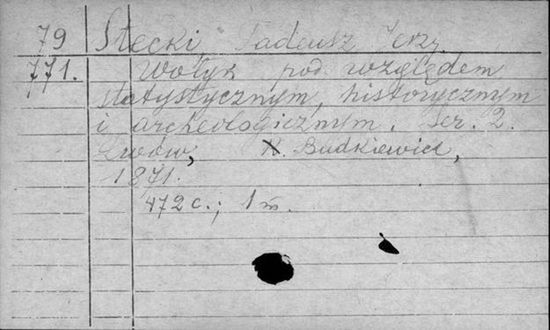 79 Stecki, Tadeusz Jerzy.
771. Wołyń pod względem
statystycznym, historycznym
i archeologicznym. Ser. 2.
Lwów, K. Budkiewicz,
1871.
472 c.; 1 m.